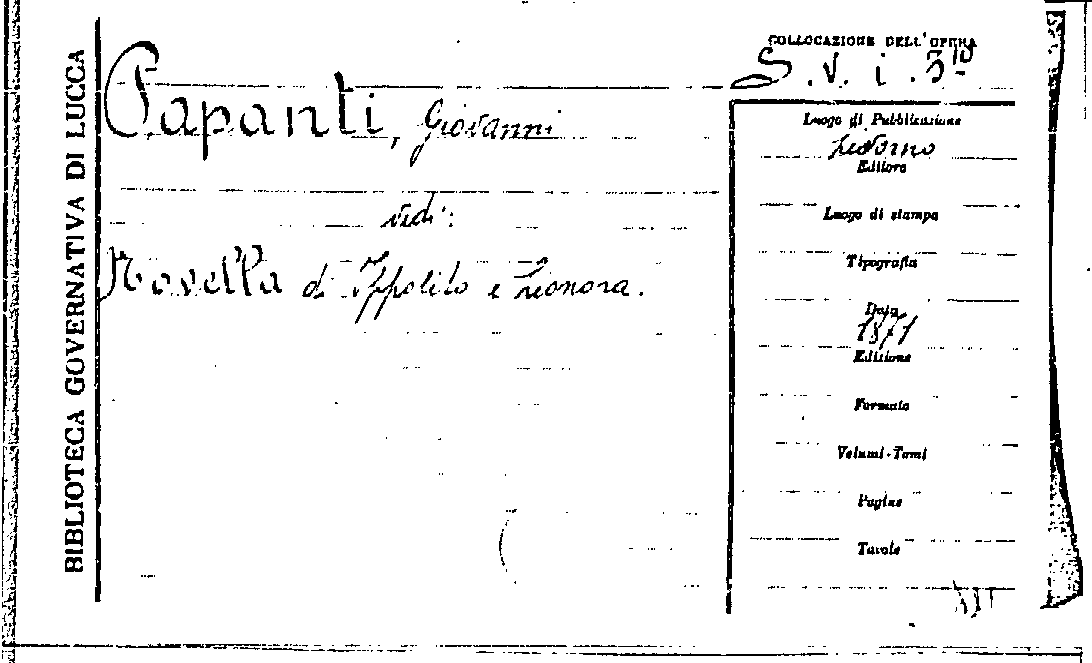 BIBLIOTECA GOVERNATIVA DI LUCCA
Papanti, Giovanni
vedi:
Novella di Ippolito e Lionora.
COLLOCAZIONE DELL'OPERA
S. v. i. 3
Luogo di Pubblicazione
Livorno
Editore
Luogo di stampa
Tipografia
Data
1871
Edizione
Formato
Volumi-Tomi
Pagine
Tavole